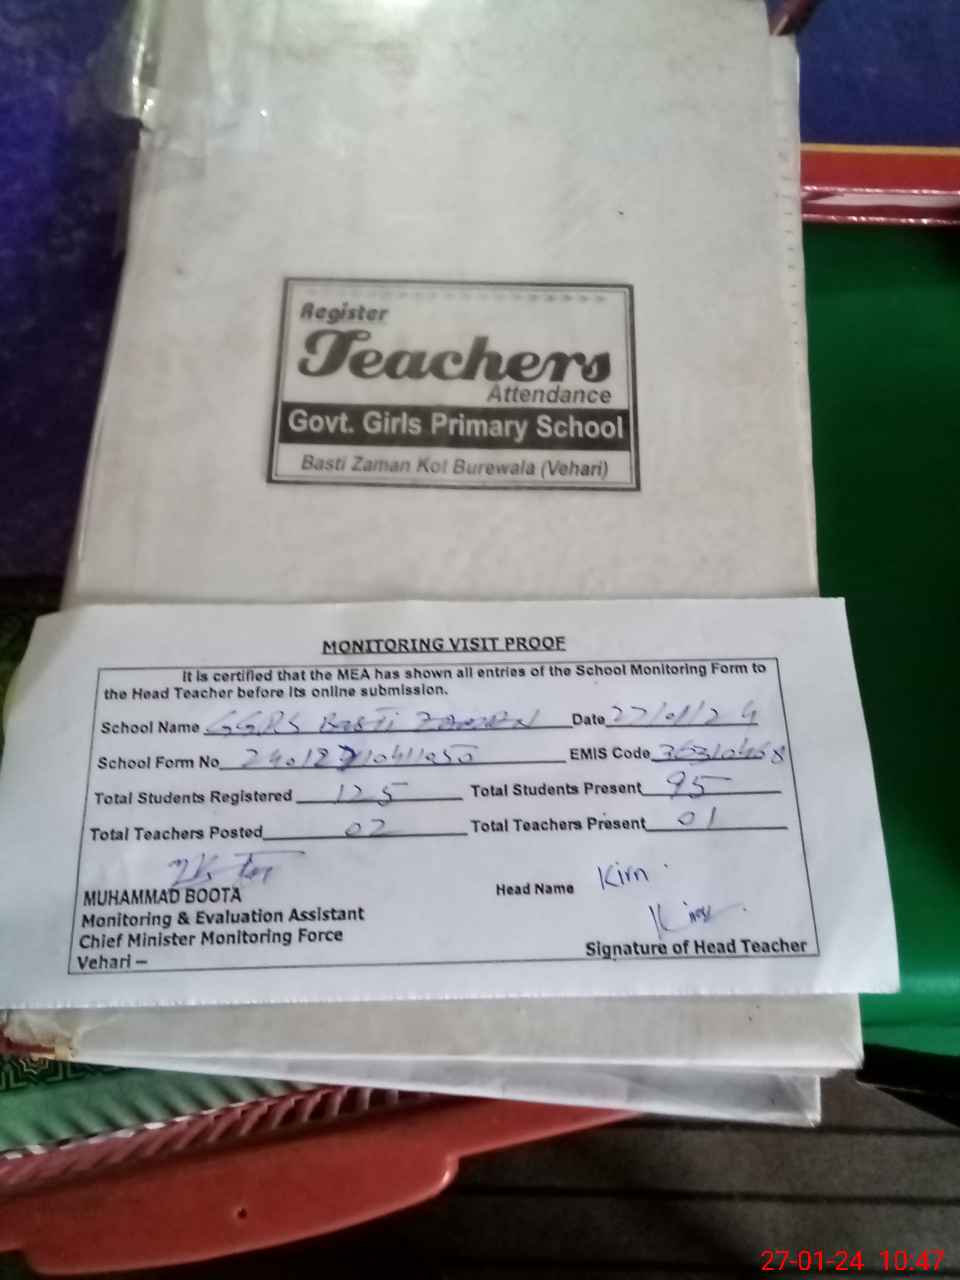 Register
Teachers
Attendance
Govt. Girls Primary School
Basti Zaman Kot Burewala (Vehari)
MONITORING VISIT PROOF
It is certified that the MEA has shown all entries of the School Monitoring Form to
the Head Teacher before its online submission.
School Name GGPS Basti Zaman Date 27/01/24
School Form No EMIS Code 36310468
Total Students Registered 125 Total Students Present 95
Total Teachers Posted 02 Total Teachers Present 01
MUHAMMAD BOOTA
Head Name Kirn
Monitoring & Evaluation Assistant
Chief Minister Monitoring Force
Signature of Head Teacher
Vehari –
27-01-24 10:47